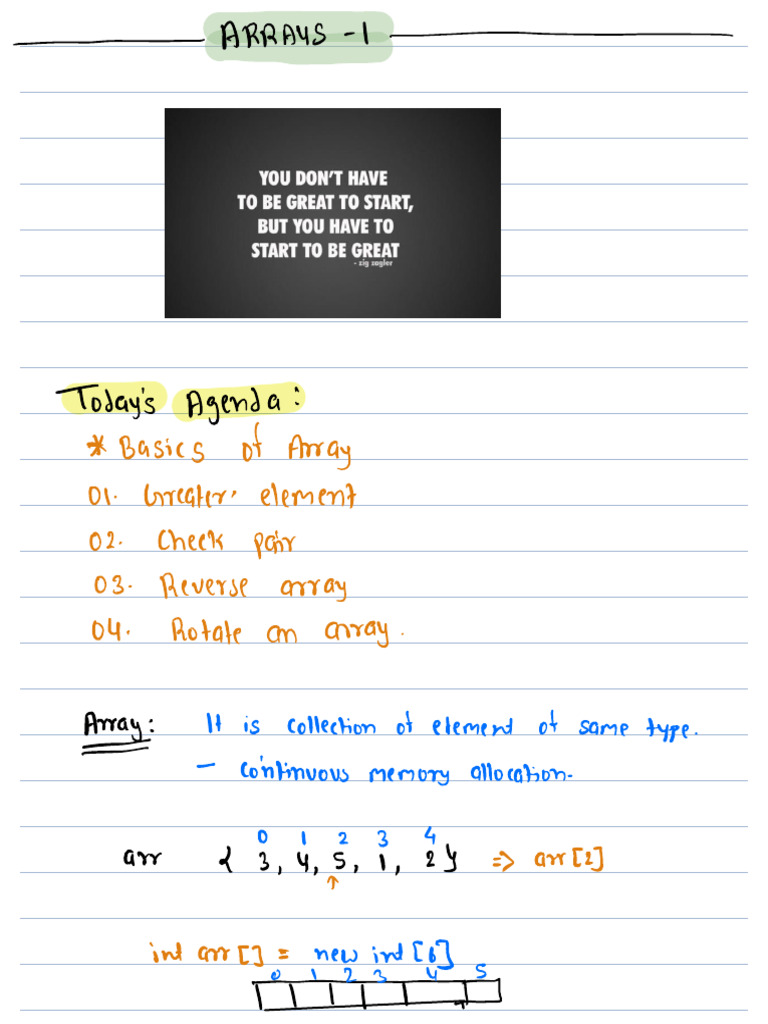 ARRAYS -1
YOU DON'T HAVE
TO BE GREAT TO START,
BUT YOU HAVE TO
START TO BE GREAT
- zig zagler
Today's Agenda:
* Basics of Array
01. Greater element
02. Check pair
03. Reverse array
04. Rotate an array.
Array: It is collection of element of same type.
- continuous memory allocation.
0 1 2 3 4
arr { 3, 4, 5, 1, 2 } => arr[2]
↑
int arr[] = new int[6]
0 1 2 3 4 5